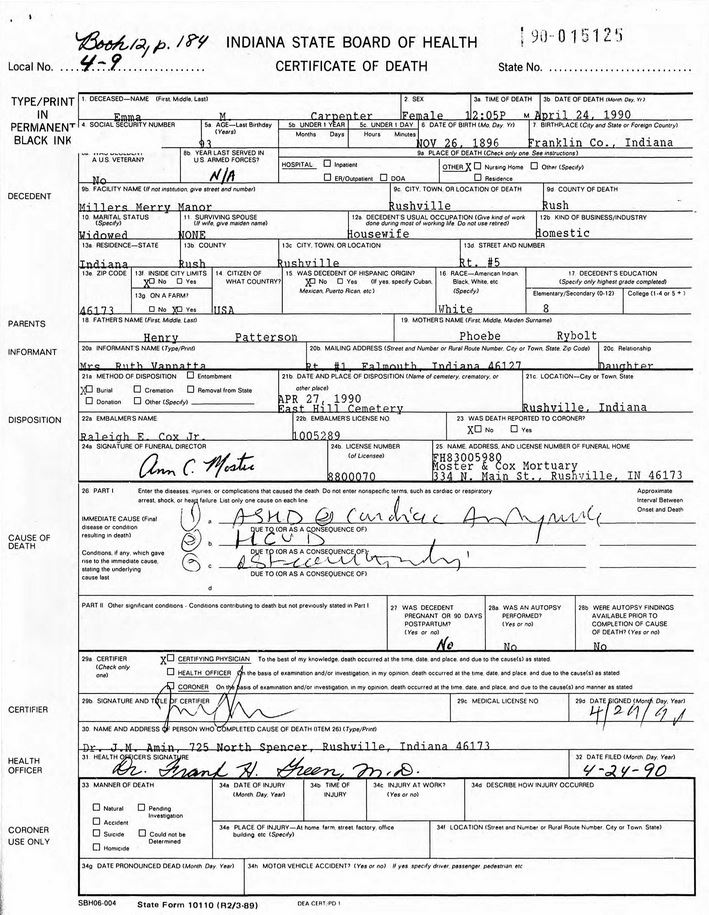 Book 12, p. 184 INDIANA STATE BOARD OF HEALTH 90-015125
Local No. 4-9 CERTIFICATE OF DEATH State No.
TYPE/PRINT IN PERMANENT BLACK INK
1. DECEASED—NAME (First, Middle, Last) 2. SEX 3a TIME OF DEATH 3b DATE OF DEATH (Month, Day, Yr.)
Emma M Carpenter Female 12:05P M April 24, 1990
4 SOCIAL SECURITY NUMBER 5a AGE—Last Birthday (Years) 5b UNDER 1 YEAR 5c UNDER 1 DAY 6 DATE OF BIRTH (Mo, Day, Yr) 7 BIRTHPLACE (City and State or Foreign Country)
Months Days Hours Minutes
93 NOV 26, 1896 Franklin Co., Indiana
A U.S. VETERAN? 8b YEAR LAST SERVED IN U.S. ARMED FORCES? 9a PLACE OF DEATH (Check only one. See instructions)
HOSPITAL Inpatient OTHER X Nursing Home Other (Specify)
No N/A ER/Outpatient DOA Residence
DECEDENT
9b. FACILITY NAME (If not institution, give street and number) 9c. CITY, TOWN, OR LOCATION OF DEATH 9d COUNTY OF DEATH
Millers Merry Manor Rushville Rush
10. MARITAL STATUS (Specify) 11. SURVIVING SPOUSE (If wife, give maiden name) 12a DECEDENT'S USUAL OCCUPATION (Give kind of work done during most of working life. Do not use retired) 12b KIND OF BUSINESS/INDUSTRY
Widowed NONE Housewife domestic
13a RESIDENCE—STATE 13b COUNTY 13c CITY, TOWN, OR LOCATION 13d STREET AND NUMBER
Indiana Rush Rushville Rt. #5
13e. ZIP CODE 13f. INSIDE CITY LIMITS 14 CITIZEN OF WHAT COUNTRY? 15 WAS DECEDENT OF HISPANIC ORIGIN? 16 RACE—American Indian, Black, White, etc (Specify) 17 DECEDENT'S EDUCATION (Specify only highest grade completed)
X No Yes X No Yes (If yes, specify Cuban, Mexican, Puerto Rican, etc.)
13g ON A FARM? Elementary/Secondary (0-12) College (1-4 or 5 +)
46173 No X Yes USA White 8
PARENTS
18 FATHER'S NAME (First, Middle, Last) 19. MOTHER'S NAME (First, Middle, Maiden Surname)
Henry Patterson Phoebe Rybolt
INFORMANT
20a INFORMANT'S NAME (Type/Print) 20b. MAILING ADDRESS (Street and Number or Rural Route Number, City or Town, State, Zip Code) 20c. Relationship
Mrs. Ruth Vannatta Rt. #1, Falmouth, Indiana 46127 Daughter
21a METHOD OF DISPOSITION Entombment 21b DATE AND PLACE OF DISPOSITION (Name of cemetery, crematory, or other place) 21c. LOCATION—City or Town, State
X Burial Cremation Removal from State
Donation Other (Specify)
APR 27, 1990
East Hill Cemetery Rushville, Indiana
DISPOSITION
22a EMBALMER'S NAME 22b EMBALMER'S LICENSE NO. 23 WAS DEATH REPORTED TO CORONER?
X No Yes
Raleigh E. Cox Jr. 1005289
24a SIGNATURE OF FUNERAL DIRECTOR 24b. LICENSE NUMBER (of Licensee) 25 NAME, ADDRESS, AND LICENSE NUMBER OF FUNERAL HOME
Ann C. Moster 8800070
FH83005980
Moster & Cox Mortuary
334 N. Main St., Rushville, IN 46173
CAUSE OF DEATH
26 PART I Enter the diseases, injuries, or complications that caused the death. Do not enter nonspecific terms, such as cardiac or respiratory arrest, shock, or heart failure. List only one cause on each line
Approximate Interval Between Onset and Death
IMMEDIATE CAUSE (Final disease or condition resulting in death)
a ASHD Cardiac
DUE TO (OR AS A CONSEQUENCE OF)
b HCVD
Conditions, if any, which gave rise to the immediate cause, stating the underlying cause last
DUE TO (OR AS A CONSEQUENCE OF)
c
DUE TO (OR AS A CONSEQUENCE OF)
d
PART II Other significant conditions - Conditions contributing to death but not previously stated in Part I
27 WAS DECEDENT PREGNANT OR 90 DAYS POSTPARTUM? (Yes or no) No
28a WAS AN AUTOPSY PERFORMED? (Yes or no) No
28b WERE AUTOPSY FINDINGS AVAILABLE PRIOR TO COMPLETION OF CAUSE OF DEATH? (Yes or no) No
CERTIFIER
29a CERTIFIER (Check only one)
X CERTIFYING PHYSICIAN To the best of my knowledge, death occurred at the time, date, and place, and due to the cause(s) as stated
HEALTH OFFICER On the basis of examination and/or investigation, in my opinion, death occurred at the time, date, and place, and due to the cause(s) as stated
CORONER On the basis of examination and/or investigation, in my opinion, death occurred at the time, date, and place, and due to the cause(s) and manner as stated
29b. SIGNATURE AND TITLE OF CERTIFIER 29c. MEDICAL LICENSE NO 29d DATE SIGNED (Month, Day, Year)
30. NAME AND ADDRESS OF PERSON WHO COMPLETED CAUSE OF DEATH (ITEM 26) (Type/Print)
Dr. J.M. Amin, 725 North Spencer, Rushville, Indiana 46173
HEALTH OFFICER
31. HEALTH OFFICER'S SIGNATURE 32 DATE FILED (Month, Day, Year)
Dr. Frank H. Green, M.D. 4-24-90
CORONER USE ONLY
33 MANNER OF DEATH 34a DATE OF INJURY (Month, Day, Year) 34b TIME OF INJURY 34c INJURY AT WORK? (Yes or no) 34d DESCRIBE HOW INJURY OCCURRED
Natural Pending Investigation
Accident
Suicide Could not be Determined
Homicide
34e PLACE OF INJURY—At home, farm, street, factory, office building, etc (Specify) 34f LOCATION (Street and Number or Rural Route Number, City or Town, State)
34g DATE PRONOUNCED DEAD (Month, Day, Year) 34h MOTOR VEHICLE ACCIDENT? (Yes or no) If yes, specify driver, passenger, pedestrian, etc
SBH06-004 State Form 10110 (R2/3-89) DEA CERT/PD 1